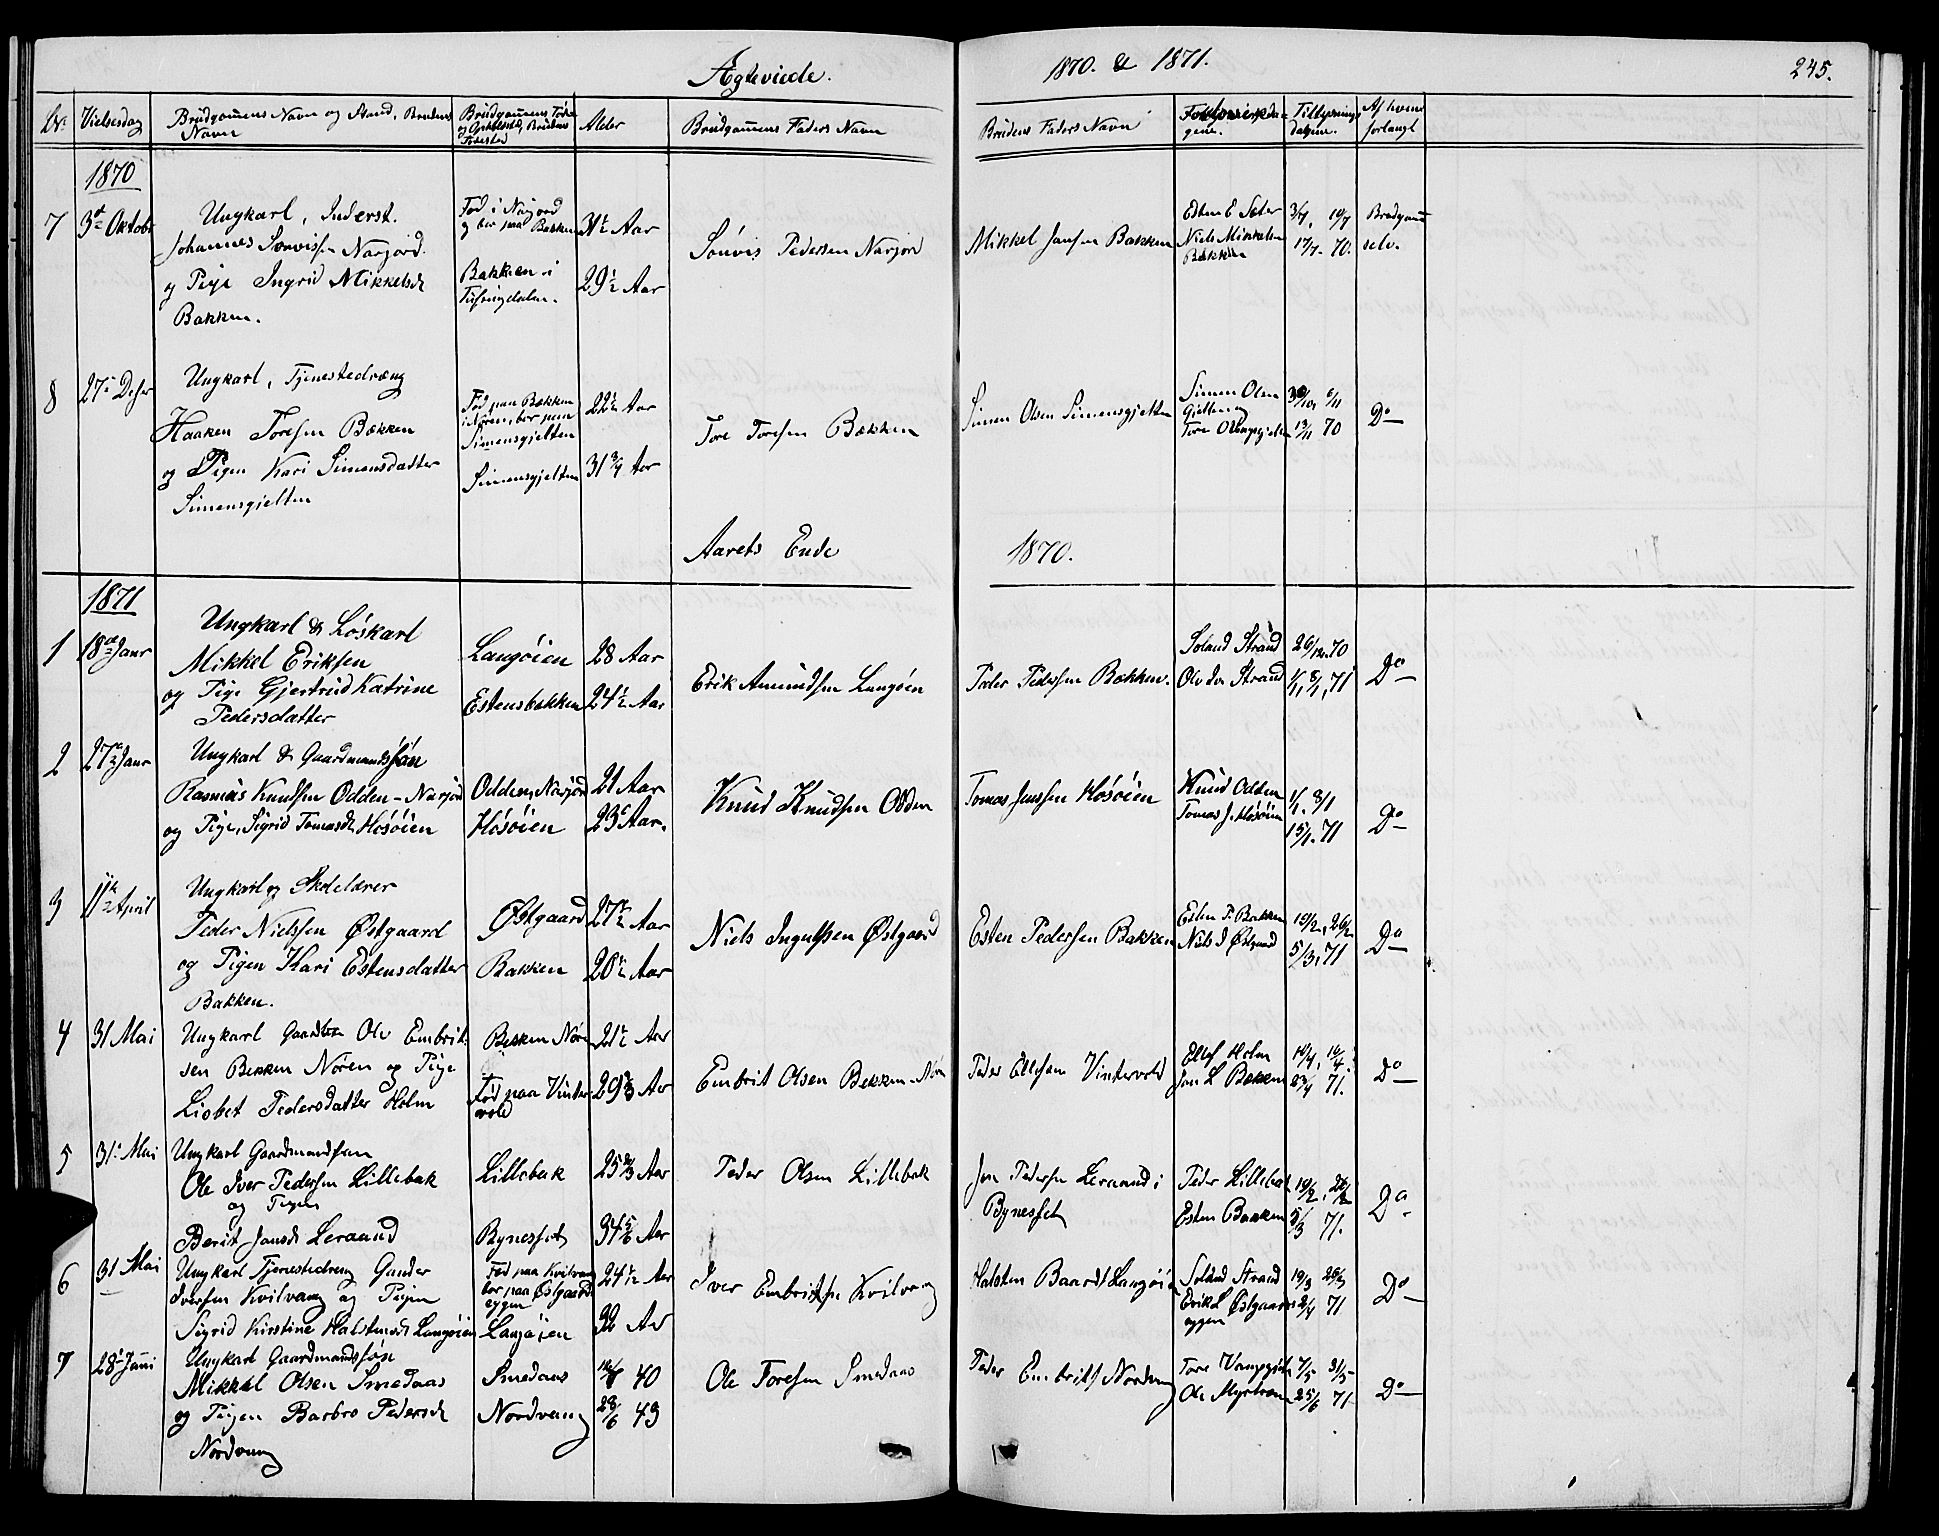 Ægteviede.
1870. & 1871.
245.
No Vielsesdag Brudgommens Navn og Stand, Brudens Navn
Brudgommens Føde og Opholdssted, Brudens Fødested
Alder
Brudgommens Faders Navn
Brudens Faders Navn
Forloverne
Tillysnings dagene.
Af hvem forlangt
1870
7 3d Oktobr
Ungkarl, Inderst.
Johannes Sørvissen Narjord.
og Pige Ingrid Mikkelsd
Bakken.
Fød i Narjord
og bor paa Bakken
Bakken i
Tufsingdalen.
31½ Aar
29½ Aar
Sørvis Pedersen Narjord
Mikkel Jansen Bakken
Esten E Sæter
Niels Mikkelsen
Bakken
3/7, 10/7
17/7 70.
Brudgom
selv.
8 27de Desbr
Ungkarl, Tjenestedræng
Haaken Toresen Bækken
og Pigen Kari Simensdatter
Simensgjelten
Fød paa Bækken
i Nøren, bor paa
Simensgjelten
Simensgjelten
22½ Aar
31¾ Aar
Tore Toresen Bækken
Simen Olsen Simensgjelten
Simen Olsen
Gjelten og
Tore
30/10, 6/11
13/11 70
Do
Aarets Ende
1870.
1871
1 18de Janr
Ungkarl & Løskarl
Mikkel Eriksen
og Pige Gjertrud Katrine
Pedersdatter
Langøien
Estensbækken
28 Aar
24½ Aar
Erik Amundsen Langøen
Peder Pedersen Bækken.
Soland Strand
Ole Strand
26/12 70
1/1, 8/1, 71
Do
2 27de Janr
Ungkarl & Gaardmandssøn
Rasmus Knudsen Odden-Narjord
og Pige, Sigrid Tomasd. Høsøien
Odden, Narjord
Høsøien
21 Aar
23 Aar.
Knud Knudsen Odden
Tomas Jenssen Høsøien
Knud Odden
Tomas J. Høsøien
1/1, 8/1
15/1, 71
Do
3 11te April
Ungkarl og Skolelærer
Peder Nielssen Østgaard
og Pigen Kari Estensdatter
Bakken.
Østgaard
Bakken
27½ Aar
20½ Aar
Niels Ingulfsen Østgaard
Esten Pedersen Bakken
Esten P. Bakken
Niels I Østgaard
19/2, 26/2
5/3, 71
Do
4 31 Mai
Ungkarl Ole Embrit-
sen Bekken Nøren og Pige
Lisbet Pedersdatter Holm
Bekken Nøre
Fød paa Vinter
vold
21½ Aar
29⅔ Aar
Embrit Olsen Bekken Nøre
Peder Ellefsen Vintervold
Ellef Holm
Jon L Bekken
10/4, 16/4
23/4 71.
Do
5 31. Mai
Ungkarl Gaardmandssøn
Ole Iver Pedersen Lillebak
og Pigen
Berit Jonsd Leraand
Lillebak
Bynesset
25⅔ Aar
34⅚ Aar
Peder Olsen Lillebak
Jon Pedersen Leraand i
Bynesset
Peder Lillebak
Esten Bakken
19/2, 26/2
5/3 71.
Do
6 31 Mai
Ungkarl Tjenestedreng Gunder
Iversen Kvilvang og Pigen
Sigrid Kirstine Halstensd. Langøien
Fød paa Kvilvang
bor paa Østgaards
eggen
Langøien
24½ Aar
32 Aar
Iver Embritsen Kvilvang
Halsten Baards. Langøien
Soland Strand
Erik L Østgaards
eggen
19/3 26/3
2/4 71
Do
7 28de Juni
Ungkarl Gaardmandssøn
Mikkel Olsen Smedaas
og Pigen Barbro Pedersd.
Nordvang
Smedaas
Nordvang
40
28/6 43
Ole Toresen Smedaas
Peder Embrits. Nordvang
Tore
Ole Myrtrøen
7/5 31/5
25/6 71
Do